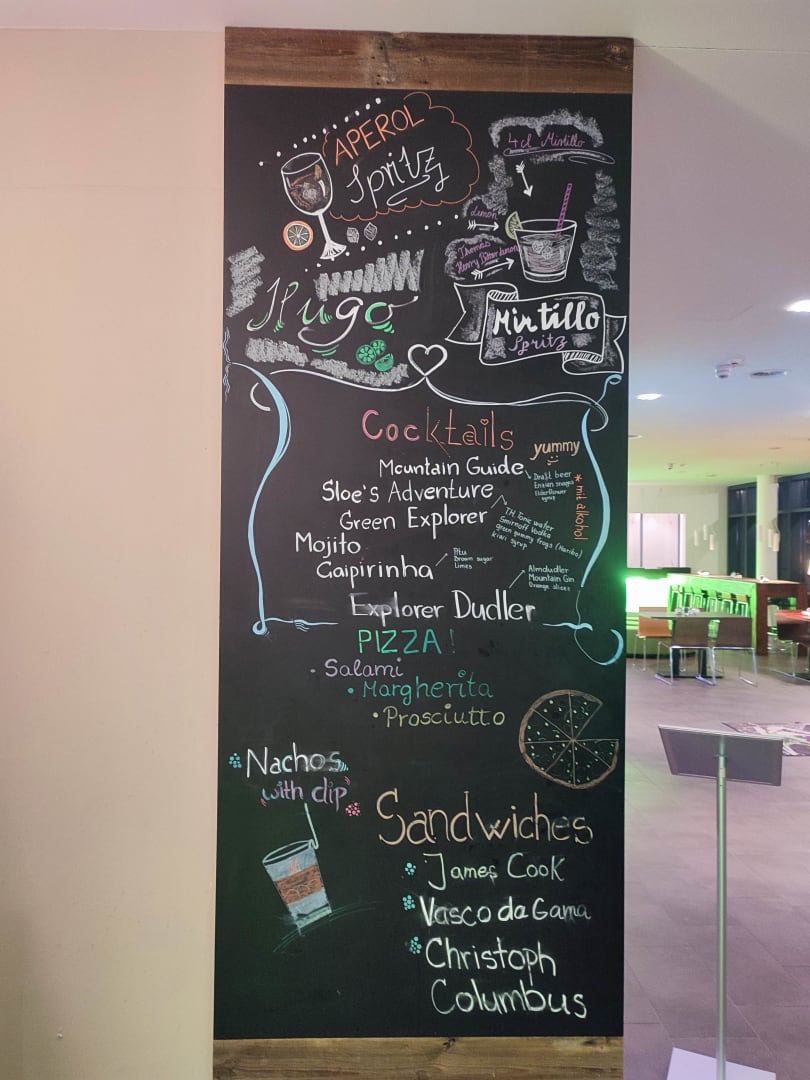 APEROL
Spritz
4cl Mirtillo
Limon
Thomas
Henry Bitter Lemon
Hugo
Mirtillo
Spritz
Cocktails
yummy
Mountain Guide
Draft beer
Enzian
Elderflower
syrup
* mit alkohol
Sloe's Adventure
Green Explorer
TH Tonic water
Smirnoff Vodka
green gummy frogs (Haribo)
kiwi syrup
Mojito
Caipirinha
Pitu
Brown sugar
Limes
Almdudler
Mountain Gin
Orange slices
Explorer Dudler
PIZZA!
• Salami
• Margherita
• Prosciutto
Nachos
with dip
Sandwiches
James Cook
Vasco da Gama
Christoph
Columbus